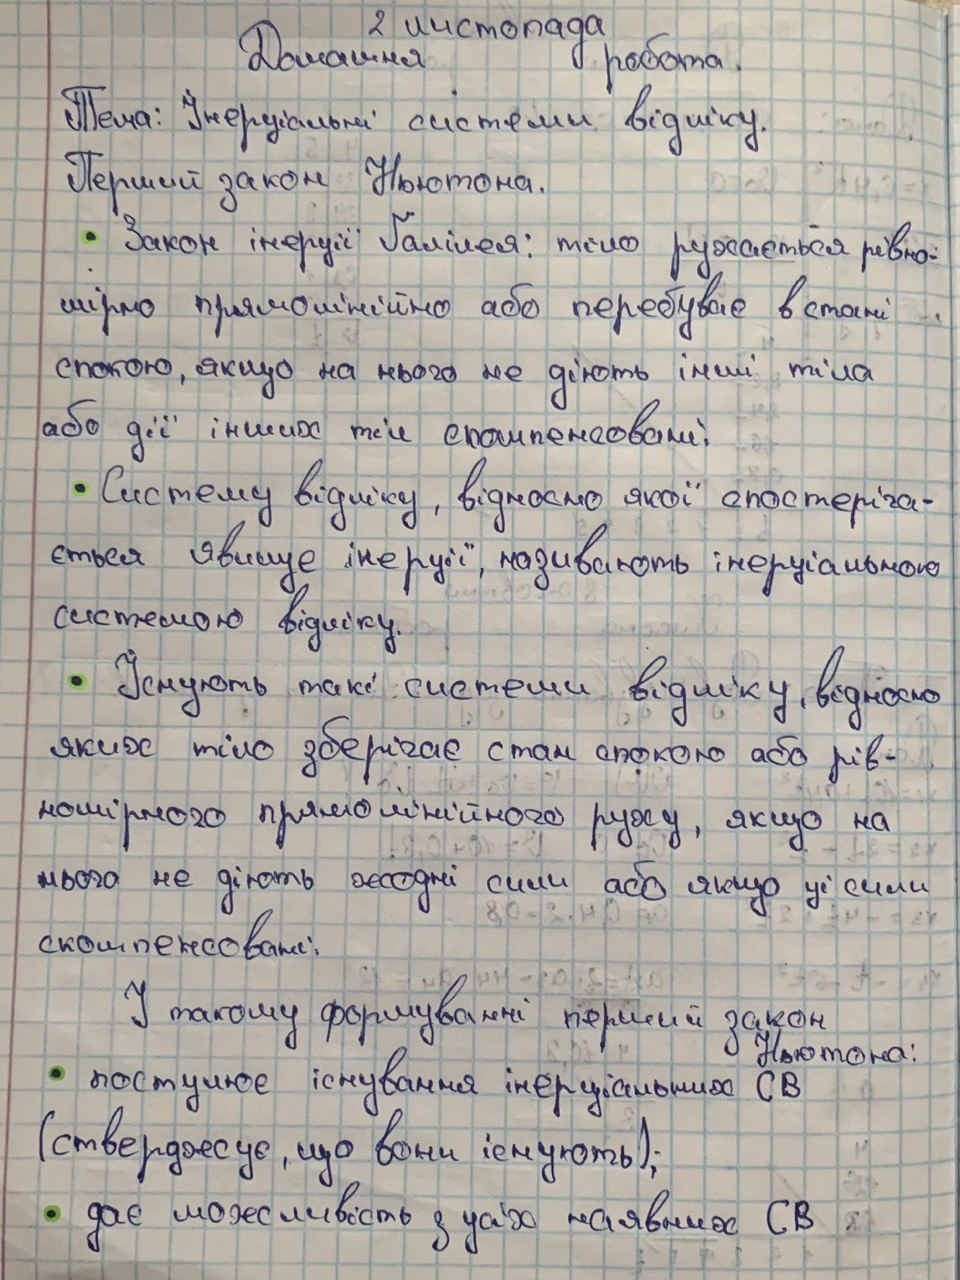 2 листопада
Домашня робота.
Тема: Інерціальні системи відліку.
Перший закон Ньютона.
• Закон інерції Галілея: тіло рухається рівно-
мірно прямолінійно або перебуває в стані
спокою, якщо на нього не діють інші тіла
або дії інших тіл скомпенсовані.
• Систему відліку, відносно якої спостеріга-
ється явище інерції, називають інерціальною
системою відліку.
• Існують такі системи відліку, відносно
яких тіло зберігає стан спокою або рів-
номірного прямолінійного руху, якщо на
нього не діють жодні сили або якщо ці сили
скомпенсовані.
У такому формуванні перший закон
Ньютона:
• постулює існування інерціальних СВ
(стверджує, що вони існують);
• дає можливість з усіх наявних СВ